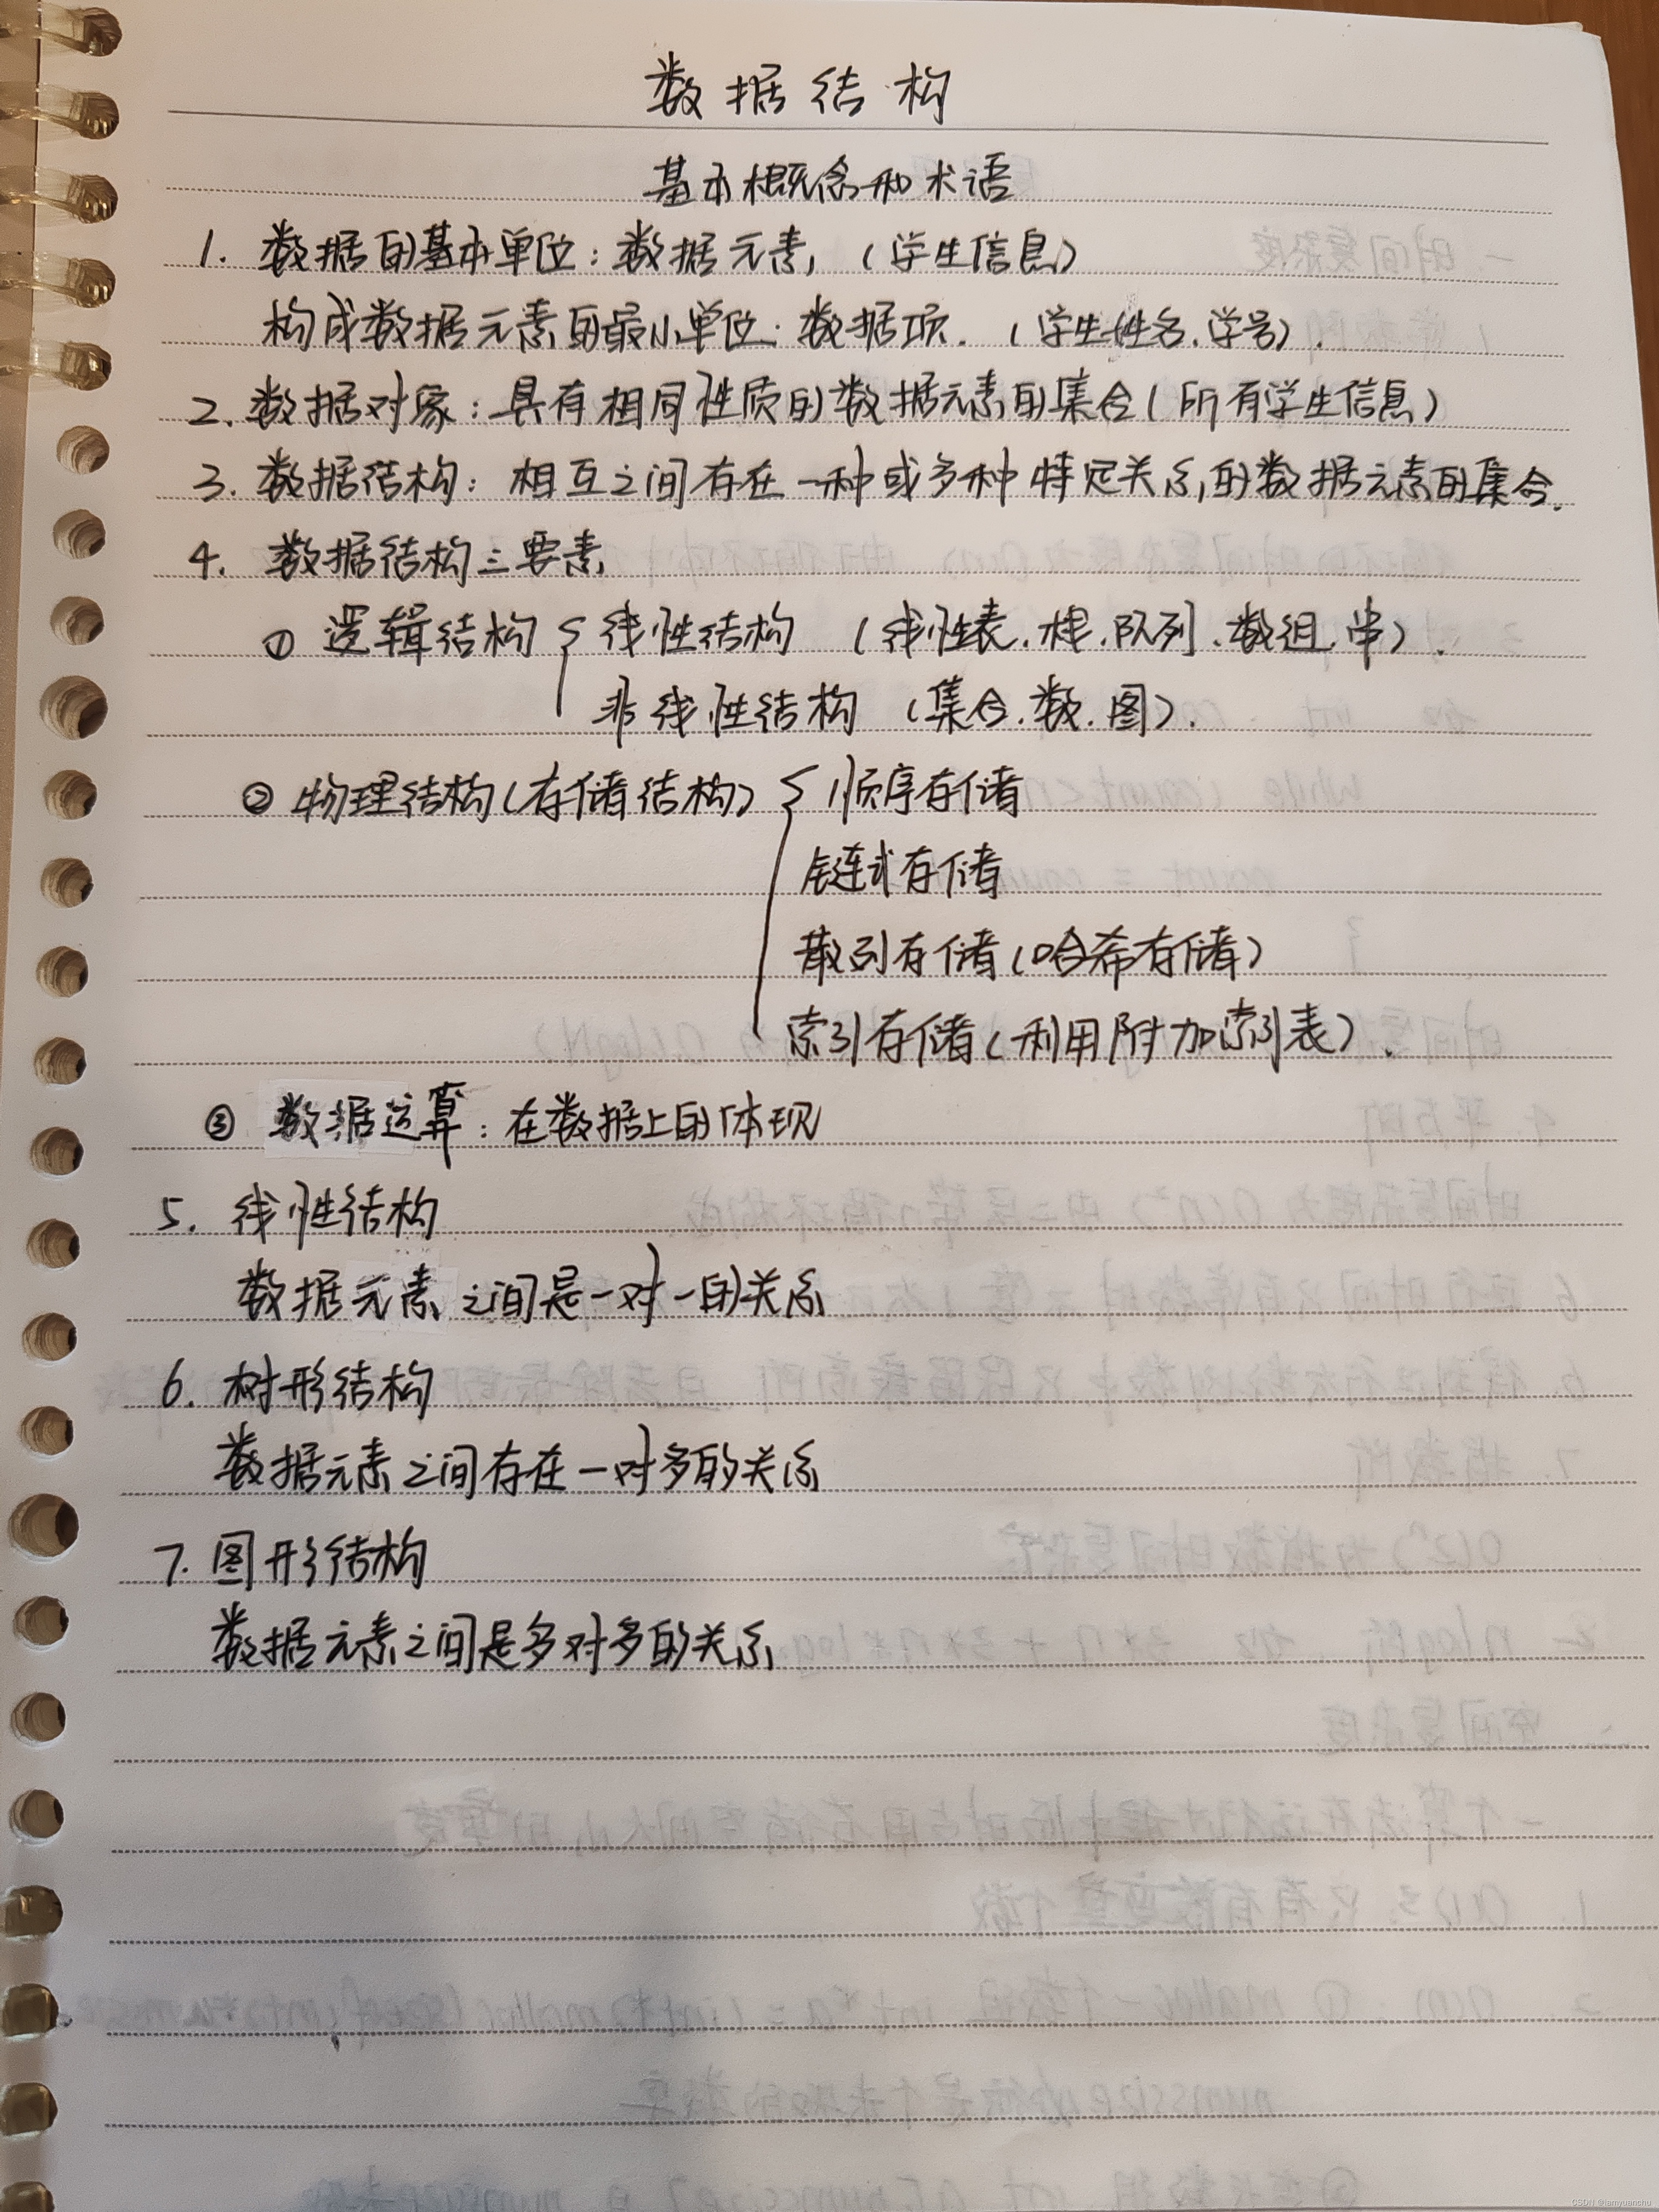 数据结构
基本概念和术语
1. 数据的基本单位：数据元素，（学生信息）
构成数据元素的最小单位：数据项.（学生姓名.学号）.
2. 数据对象：具有相同性质的数据元素的集合（所有学生信息）
3. 数据结构：相互之间存在一种或多种特定关系的数据元素的集合.
4. 数据结构三要素
① 逻辑结构 { 线性结构 （线性表.栈.队列.数组.串）.
非线性结构 （集合.数.图）.
② 物理结构（存储结构） { 顺序存储
链式存储
散列存储（哈希存储）
索引存储（利用附加索引表）.
③ 数据运算：在数据上的体现
5. 线性结构
数据元素之间是一对一的关系
6. 树形结构
数据元素之间存在一对多的关系
7. 图形结构
数据元素之间是多对多的关系
CSDN @iamyuanchu